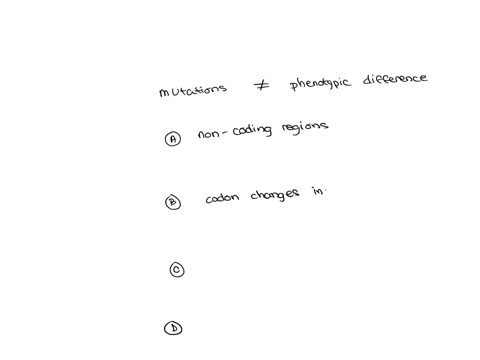 mutations ≠ phenotypic difference
Ⓐ non-coding regions
Ⓑ codon changes in.
Ⓒ
Ⓓ